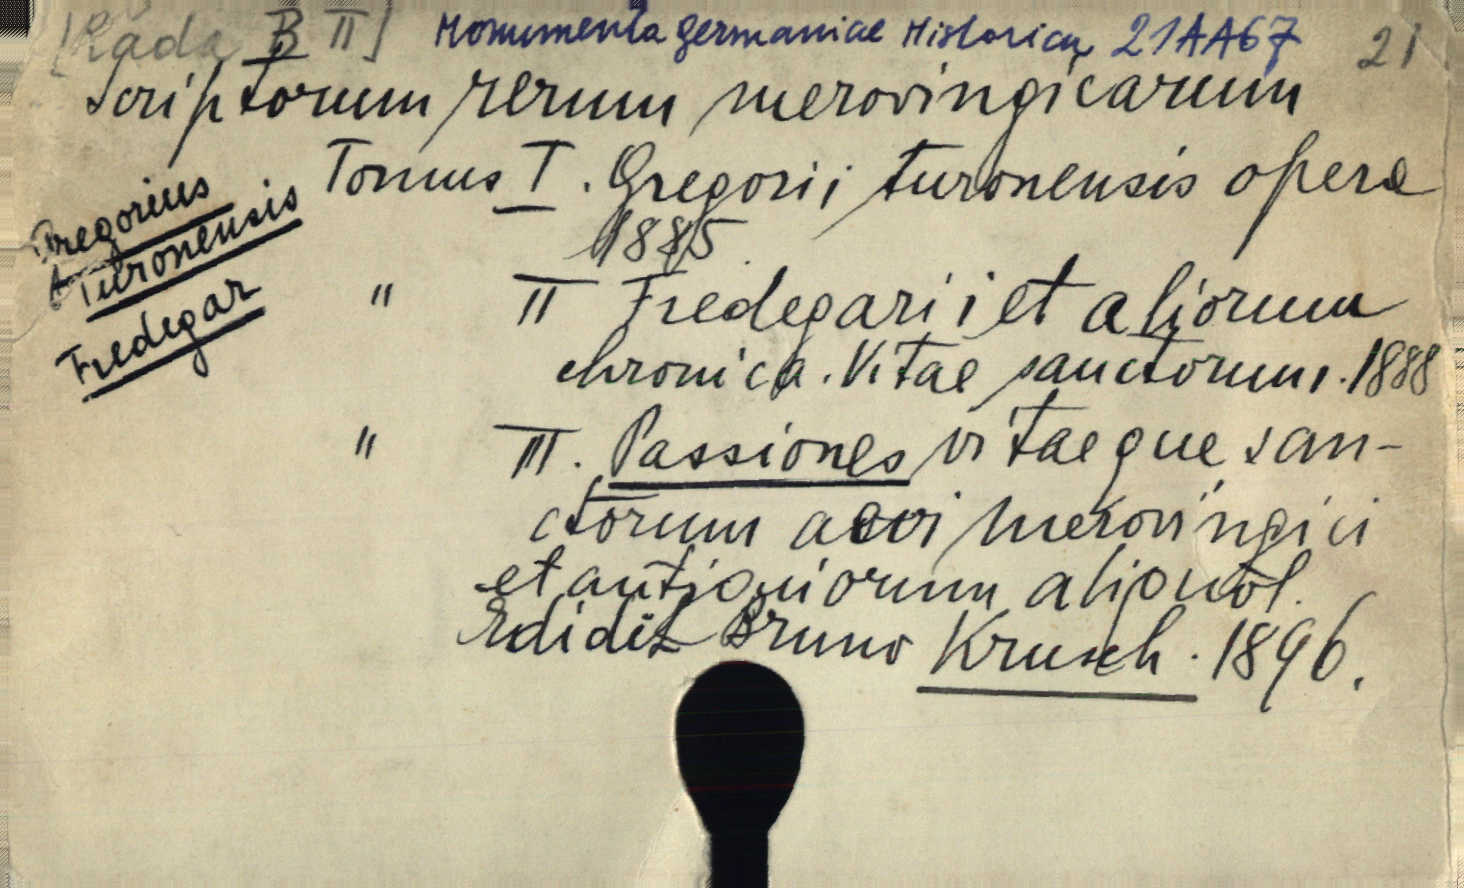 [Rada B II] Monumenta Germaniae Historica 21AA67 21
Scriptorum rerum merovingicarum
Tomus I. Gregorii turonensis opera
1885
Gregorius
Turonensis
Fredegar
" II Fredegarii et aliorum
chronica. Vitae sanctorum. 1888
" III. Passiones vitaeque san-
ctorum aevi merovingici
et antiquiorum aliquot.
Edidit Bruno Krusch. 1896.